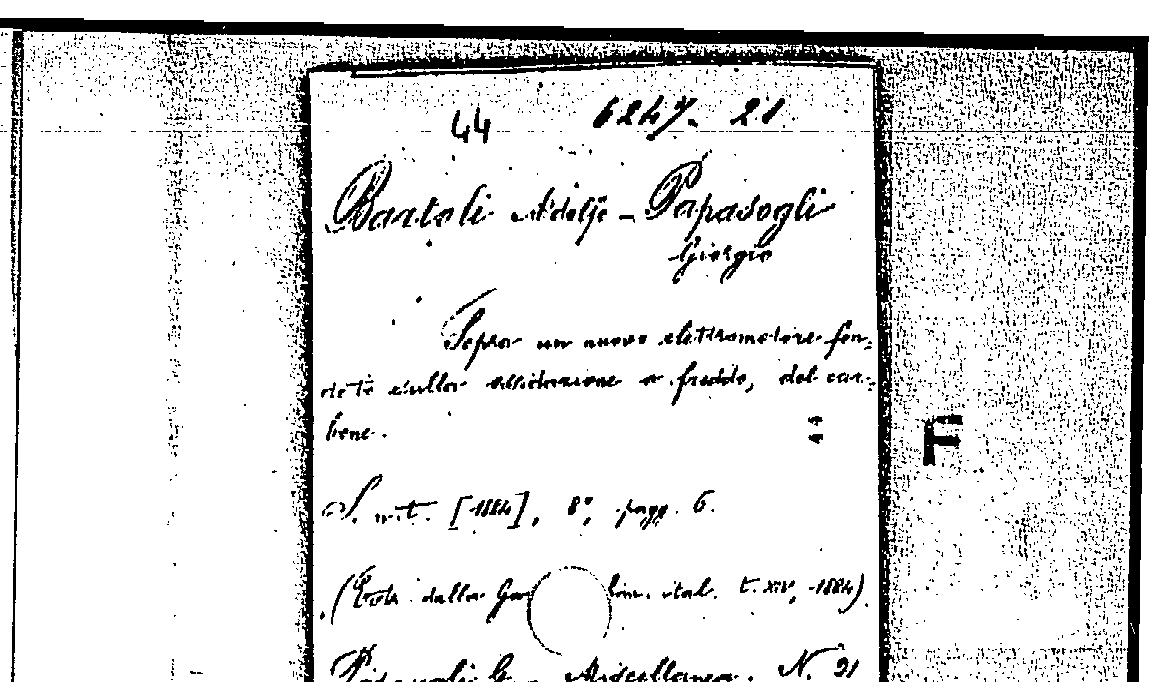 44 6247. 21
Bartoli Adolfo - Papasogli
Giorgio
Sopra un nuovo elettromotore fon=
dato sulla ossidazione a freddo, del car=
bone.
44
F
S. n. t. [1884], 8°, pagg. 6.
(Estr. dalla Gaz him. ital. t. XIV, 1884)
G. Miscellanea. N. 21